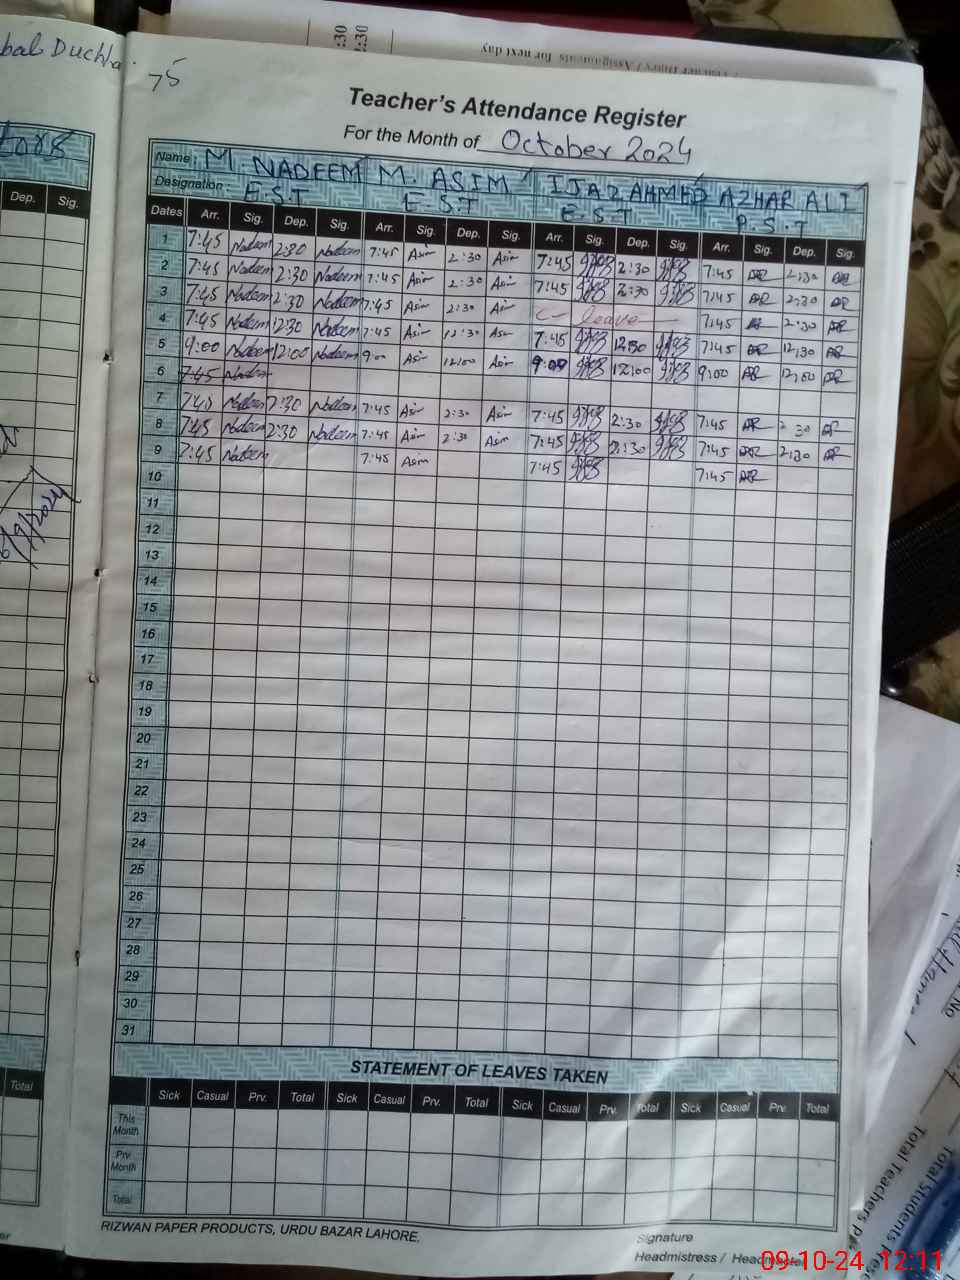 75
Teacher's Attendance Register
For the Month of October 2024
Name: M. NADEEM M. ASIM IJAZ AHMED AZHAR ALI
Designation: E.S.T E.S.T E.S.T P.S.T
Dates Arr. Sig. Dep. Sig. Arr. Sig. Dep. Sig. Arr. Sig. Dep. Sig. Arr. Sig. Dep. Sig.
1 7:45 Nadeem 2:30 Nadeem 7:45 Asim 2:30 Asim 7:45 2:30 7:45 2:30
2 7:45 Nadeem 2:30 Nadeem 7:45 Asim 2:30 Asim 7:45 2:30 7:45 2:30
3 7:45 Nadeem 2:30 Nadeem 7:45 Asim 2:30 Asim leave 7:45 2:30
4 7:45 Nadeem 12:30 Nadeem 7:45 Asim 12:30 Asim 7:45 12:30 7:45 12:30
5 9:00 Nadeem 12:00 Nadeem 9:00 Asim 12:00 Asim 9:00 12:00 9:00 12:00
6 7:45 Nadeem
7 7:45 Nadeem 2:30 Nadeem 7:45 Asim 2:30 Asim 7:45 2:30 7:45 2:30
8 7:45 Nadeem 2:30 Nadeem 7:45 Asim 2:30 Asim 7:45 2:30 7:45 2:30
9 7:45 Nadeem 7:45 Asim 7:45 7:45
10
11
12
13
14
15
16
17
18
19
20
21
22
23
24
25
26
27
28
29
30
31
STATEMENT OF LEAVES TAKEN
Sick Casual Prv. Total Sick Casual Prv. Total Sick Casual Prv. Total Sick Casual Prv. Total
This Month
Prv. Month
Total
RIZWAN PAPER PRODUCTS, URDU BAZAR LAHORE.
Signature
Headmistress / Headmaster
Dep. Sig.
Total
:30
:30
Assignments for next day
No
Total Teachers
Total Students
09-10-24 12:11